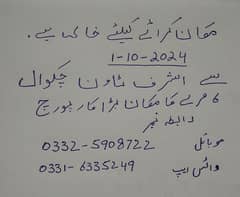 مکان کرائے کیلئے خالی ہے۔
1-10-2024
سے اشرف ٹاون چکوال
6 مرلے کا مکان بڑا کار پورچ
رابطہ نمبر
موبائل 0332-5908722
واٹس ایپ 0331-6335249